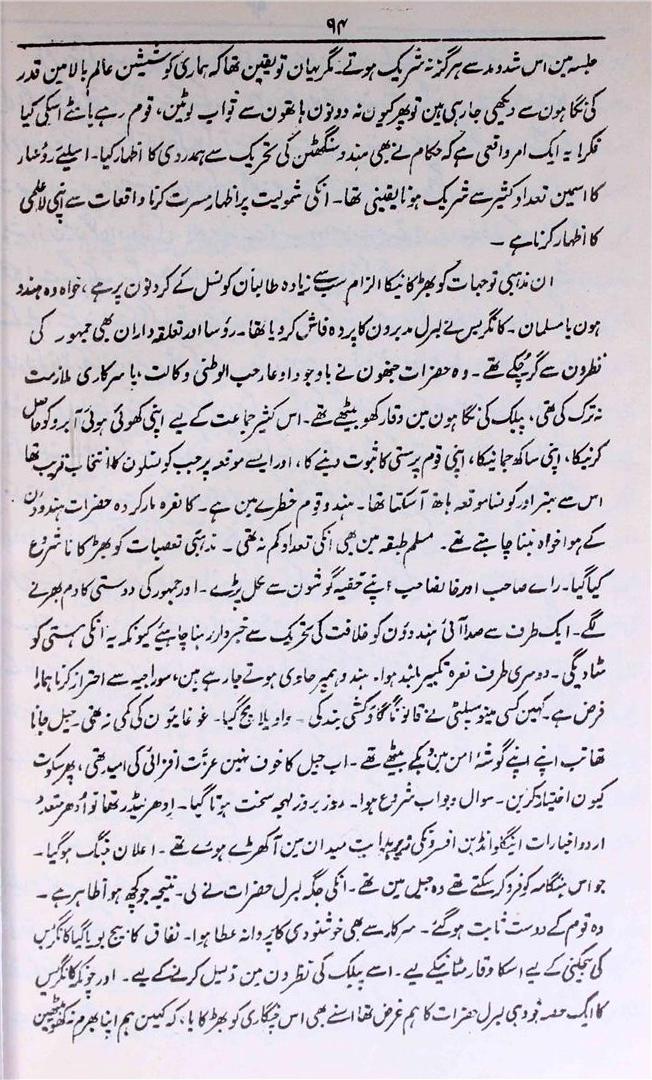 ۹۴
جلسہ مین اس شدومد سے ہرگز نہ شریک ہوتے۔ مگر یہان تو یقین تھا کہ ہماری کوششین عالم بالا مین قدر
کی نگاہون سے دیکھی جا رہی ہین تو پھر کیون نہ دونون ہاتھون سے ثواب لوٹین، قوم رہے یا مٹے اسکی کیا
فکر! یہ ایک امر واقعی ہے کہ حکام نے بھی ہندو سنگھٹن کی تحریک سے ہمدردی کا اظہار کیا۔ اسلیئے رؤسار
کا اسمین تعداد کثیر سے شریک ہونا یقینی تھا۔ انکی شمولیت پر اظہار مسرت کرنا واقعات سے اپنی لاعلمی
کا اظہار کرنا ہے ۔
ان مذہبی توجہات کو بھڑکانیکا الزام سب سے زیادہ طالبان کونسل کے گردنون پر ہے، خواہ وہ ہندو
ہون یا مسلمان ۔ کانگریس نے لبرل مدبرون کا پردہ فاش کر دیا تھا۔ رؤسا اور تعلقہ داران بھی جمہور کی
نظرون سے گر چکے تھے ۔ وہ حضرات جنھون نے باوجود ادعار حب الوطنی وکالت، یا سرکاری ملازمت
نہ ترک کی تھی، پبلک کی نگاہون مین وقار کھو بیٹھے تھے۔ اس کثیر جماعت کے لیے اپنی کھوئی ہوئی آبرو کو حاصل
کرنیکا، اپنی ساکھ جمانیکا، اپنی قوم پرستی کا ثبوت دینے کا، اور ایسے موقعہ پر جب کونسلون کا انتخاب قریب تھا
اس سے بہتر اور کونسا موقعہ ہاتھ آ سکتا تھا۔ ہندو قوم خطرے مین ہے۔ کا نعرہ مار کر دہ حضرات ہندوؤن
کے ہوا خواہ بننا چاہتے تھے۔ مسلم طبقہ مین بھی انکی تعداد کم نہ تھی ۔ مذہبی تعصبات کو بھڑکانا شروع
کیا گیا۔ رائے صاحب اور خانصاحب اپنے خفیہ گوشون سے نکل پڑے ۔ اور جمہور کی دوستی کا دم بھرنے
لگے۔ ایک طرف سے صدا آئی ہندوؤن کو خلافت کی تحریک سے خبردار رہنا چاہیئے کیونکہ یہ انکی ہستی کو
مٹا دیگی ۔ دوسری طرف نعرہ تکبیر بلند ہوا۔ ہندو ہمپر حاوی ہوتے جا رہے ہین، سوراجیہ سے احتراز کرنا ہمارا
فرض ہے۔ کہین کسی مینوسپلٹی نے قانوناً گاؤکشی بند کی ۔ واویلا مچ گیا۔ غوغائیون کی کمی نہ تھی ۔ جیل جانا
تھا تب اپنے اپنے گوشۂ امن مین دبکے بیٹھے تھے ۔ اب جیل کا خوف نہین عزت افزائی کی امید تھی، پھر سکوت
کیون اختیار کرین۔ سوال وجواب شروع ہوا۔ روز بروز لہجہ سخت ہوتا گیا۔ ادھر لیڈر تھا تو اُدھر متعدد
اردو اخبارات اینگلو انڈین افسرونکی زیر ہدایت میدان مین آکھڑے ہوئے تھے ۔ اعلان جنگ ہو گیا۔
جو اس ہنگامہ کو فرو کر سکتے تھے وہ جیل مین تھے۔ انکی جگہ لبرل حضرات نے لی۔ نتیجہ جو کچھ ہوا ظاہر ہے ۔
وہ قوم کے دوست ثابت ہو گئے ۔ سرکار سے بھی خوشنودی کا پروانہ عطا ہوا۔ نفاق کا بیج بویا گیا کانگریس
کی بیخکنی کے لیے اسکا وقار مٹانیکے لیے۔ اسے پبلک کی نظرون مین ذلیل کرنے کے لیے۔ اور چونکہ کانگریس
کا ایک حصہ خود ہی لبرل حضرات کا ہم غرض تھا اسنے بھی اس چنگاری کو بھڑکایا، کہ کہین ہم اپنا بھرم نہ کھو بیٹھین